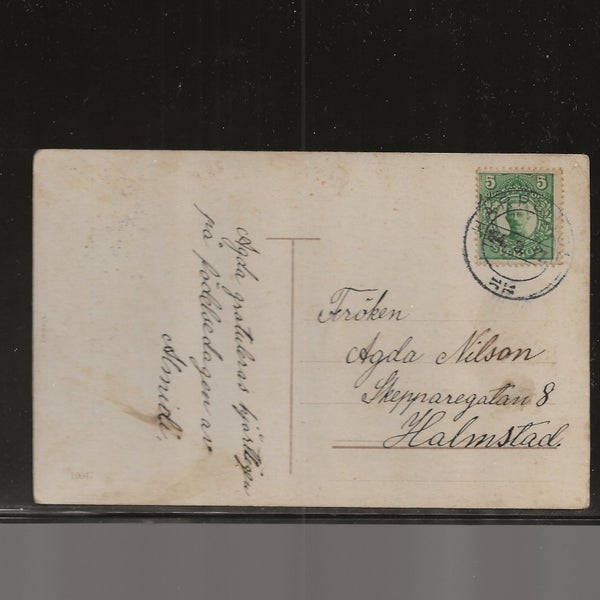 5 5
Agda gratuleras hjärtligen
på födelsedagen av
Fröken
Agda Nilson
Skepparegatan 8
Halmstad.